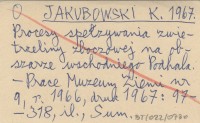 O JAKUBOWSKI K. 1967.
Procesy spełzywania zwie-
trzeliny zboczowej na ob-
szarze wschodniego Podhala.
— Prace Muzeum Ziemi nr
9, r. 1966, druk 1967: 97-
-318, il., Sum.
BT/022/0780